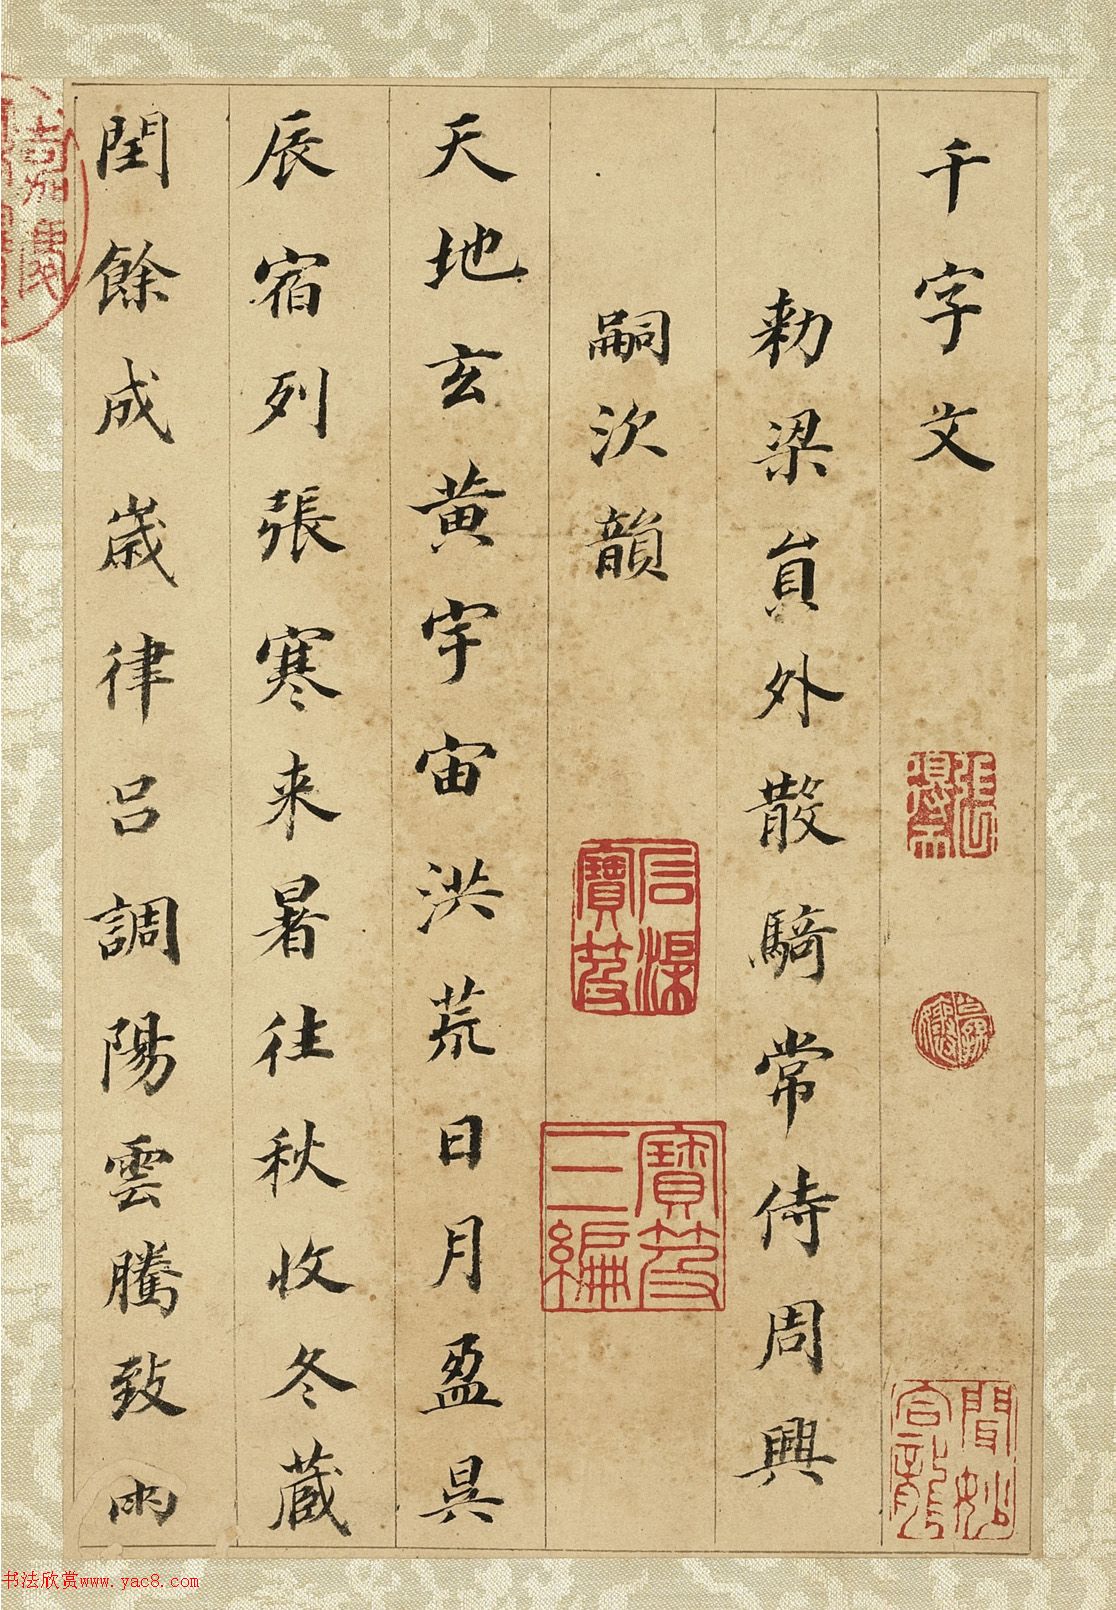 千字文
勅梁員外散騎常侍周興
嗣次韻
石渠寶笈
寶笈三編
天地玄黄宇宙洪荒日月盈昃
辰宿列張寒来暑往秋收冬藏
閏餘成歲律吕調陽雲騰致雨
嘉慶
书法欣赏www.yac8.com